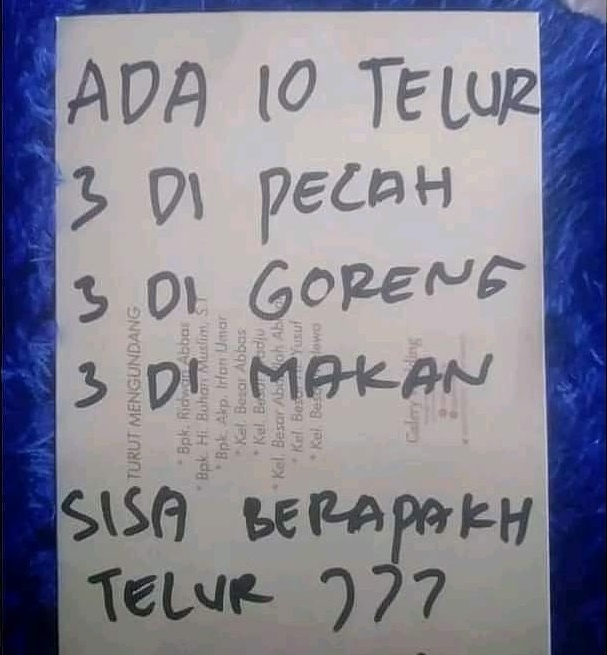 ADA 10 TELUR
3 DI PECAH
3 DI GORENG
3 DI MAKAN
SISA BERAPAKH
TELUR ???
TURUT MENGUNDANG
* Bpk. Ridwan Abbas
* Bpk. Hi. Buhari Muslim, S.T
* Bpk. Akp. Irfan Umar
* Kel. Besar Abbas
* Kel.
* Kel. Besar
* Kel. Yusuf
* Kel.